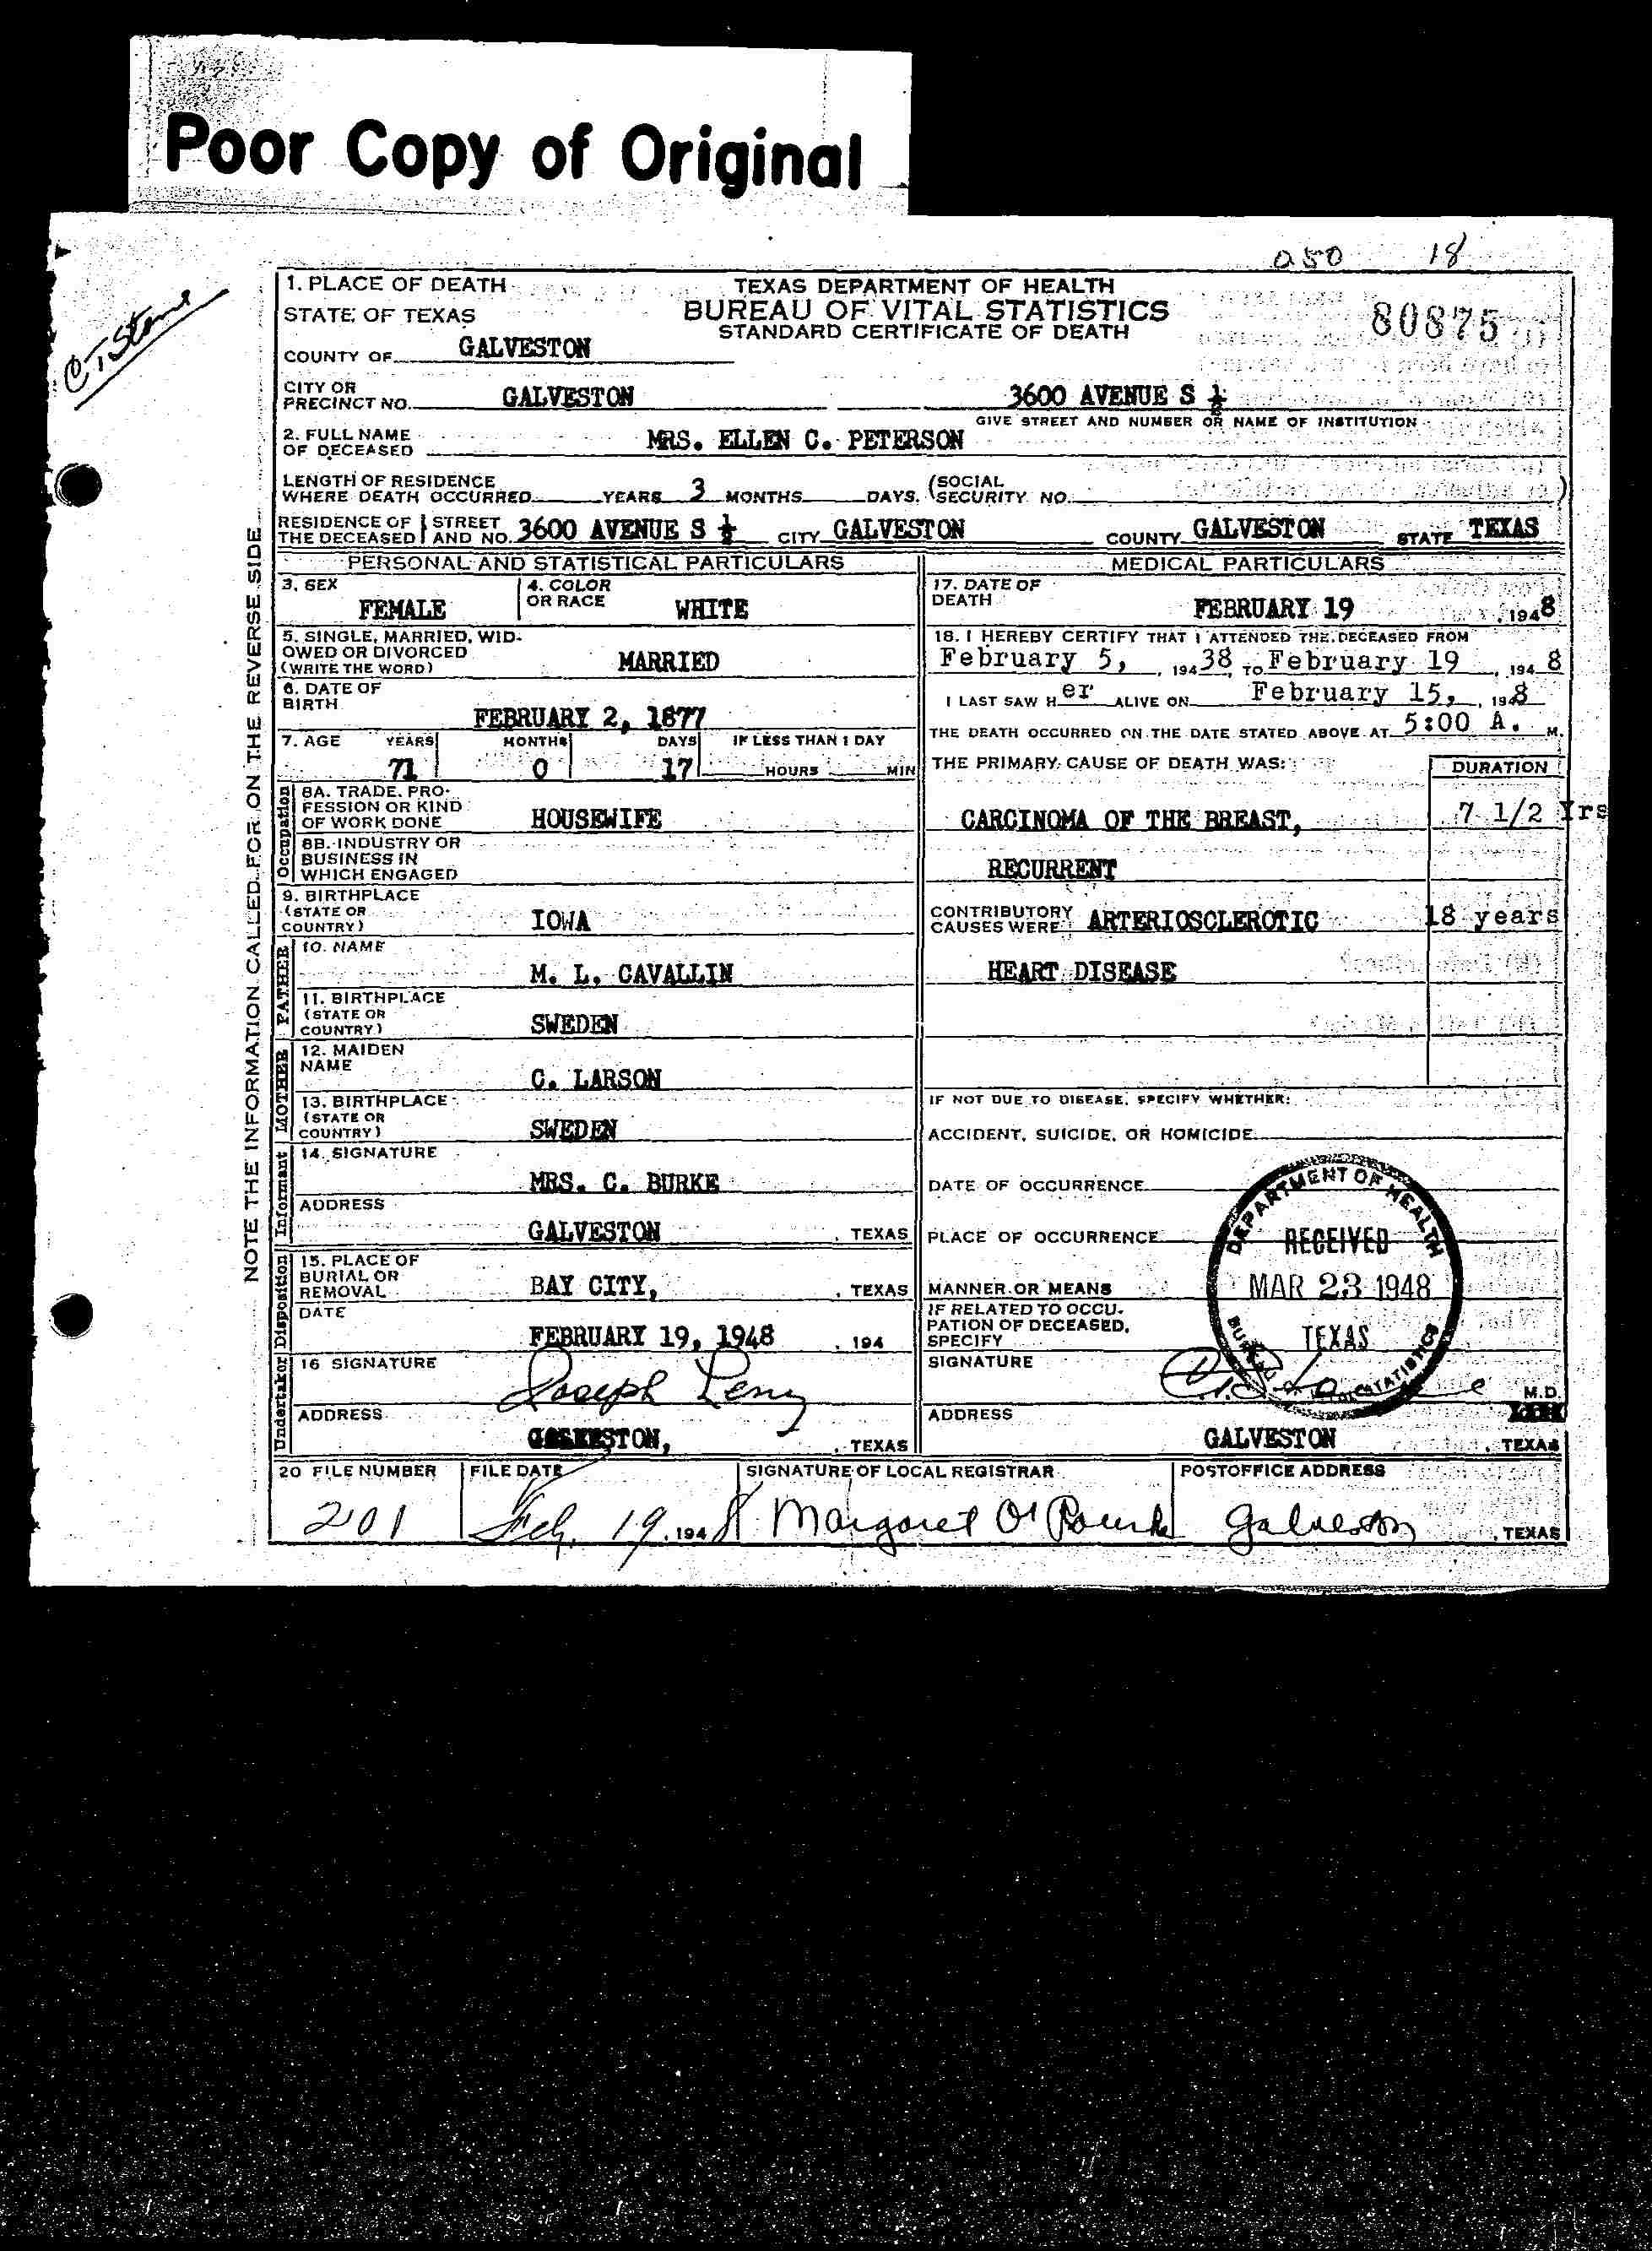 Poor Copy of Original
050 18
C.T. Stone
1. PLACE OF DEATH
STATE OF TEXAS
COUNTY OF GALVESTON
TEXAS DEPARTMENT OF HEALTH
BUREAU OF VITAL STATISTICS
STANDARD CERTIFICATE OF DEATH
80875
CITY OR
PRECINCT NO. GALVESTON 3600 AVENUE S ½
GIVE STREET AND NUMBER OR NAME OF INSTITUTION
2. FULL NAME
OF DECEASED MRS. ELLEN C. PETERSON
LENGTH OF RESIDENCE
WHERE DEATH OCCURRED YEARS 3 MONTHS DAYS. (SOCIAL
SECURITY NO. )
RESIDENCE OF
THE DECEASED
STREET
AND NO. 3600 AVENUE S ½ CITY GALVESTON COUNTY GALVESTON STATE TEXAS
NOTE THE INFORMATION CALLED FOR ON THE REVERSE SIDE
PERSONAL AND STATISTICAL PARTICULARS
3. SEX
FEMALE
4. COLOR
OR RACE WHITE
5. SINGLE, MARRIED, WID-
OWED OR DIVORCED
(WRITE THE WORD) MARRIED
6. DATE OF
BIRTH FEBRUARY 2, 1877
7. AGE YEARS MONTHS DAYS IF LESS THAN 1 DAY
71 0 17 HOURS MIN
Occupation
8A. TRADE, PRO-
FESSION OR KIND
OF WORK DONE HOUSEWIFE
8B. INDUSTRY OR
BUSINESS IN
WHICH ENGAGED
9. BIRTHPLACE
(STATE OR
COUNTRY) IOWA
FATHER
10. NAME
M. L. CAVALLIN
11. BIRTHPLACE
(STATE OR
COUNTRY) SWEDEN
MOTHER
12. MAIDEN
NAME
C. LARSON
13. BIRTHPLACE
(STATE OR
COUNTRY) SWEDEN
Informant
14. SIGNATURE
MRS. C. BURKE
ADDRESS
GALVESTON , TEXAS
Disposition
15. PLACE OF
BURIAL OR
REMOVAL BAY CITY, , TEXAS
DATE
FEBRUARY 19, 1948 , 194
Undertaker
16 SIGNATURE
Joseph Levy
ADDRESS
GALVESTON, , TEXAS
MEDICAL PARTICULARS
17. DATE OF
DEATH FEBRUARY 19 , 1948
18. I HEREBY CERTIFY THAT I ATTENDED THE DECEASED FROM
February 5, , 194 38 TO February 19 , 194 8
I LAST SAW H er ALIVE ON February 15, , 1948
THE DEATH OCCURRED ON THE DATE STATED ABOVE AT 5:00 A. M.
THE PRIMARY CAUSE OF DEATH WAS: DURATION
CARCINOMA OF THE BREAST, 7 1/2 Yrs
RECURRENT
CONTRIBUTORY
CAUSES WERE: ARTERIOSCLEROTIC 18 years
HEART DISEASE
IF NOT DUE TO DISEASE, SPECIFY WHETHER:
ACCIDENT, SUICIDE, OR HOMICIDE
DATE OF OCCURRENCE
PLACE OF OCCURRENCE
MANNER OR MEANS
IF RELATED TO OCCU-
PATION OF DECEASED,
SPECIFY
DEPARTMENT OF HEALTH
RECEIVED
MAR 23 1948
TEXAS
BUREAU OF STATISTICS
SIGNATURE
M.D.
ADDRESS
GALVESTON , TEXAS
20 FILE NUMBER FILE DATE SIGNATURE OF LOCAL REGISTRAR POSTOFFICE ADDRESS
201 Feb. 19, 194 8 Margaret O'Rourke Galveston , TEXAS